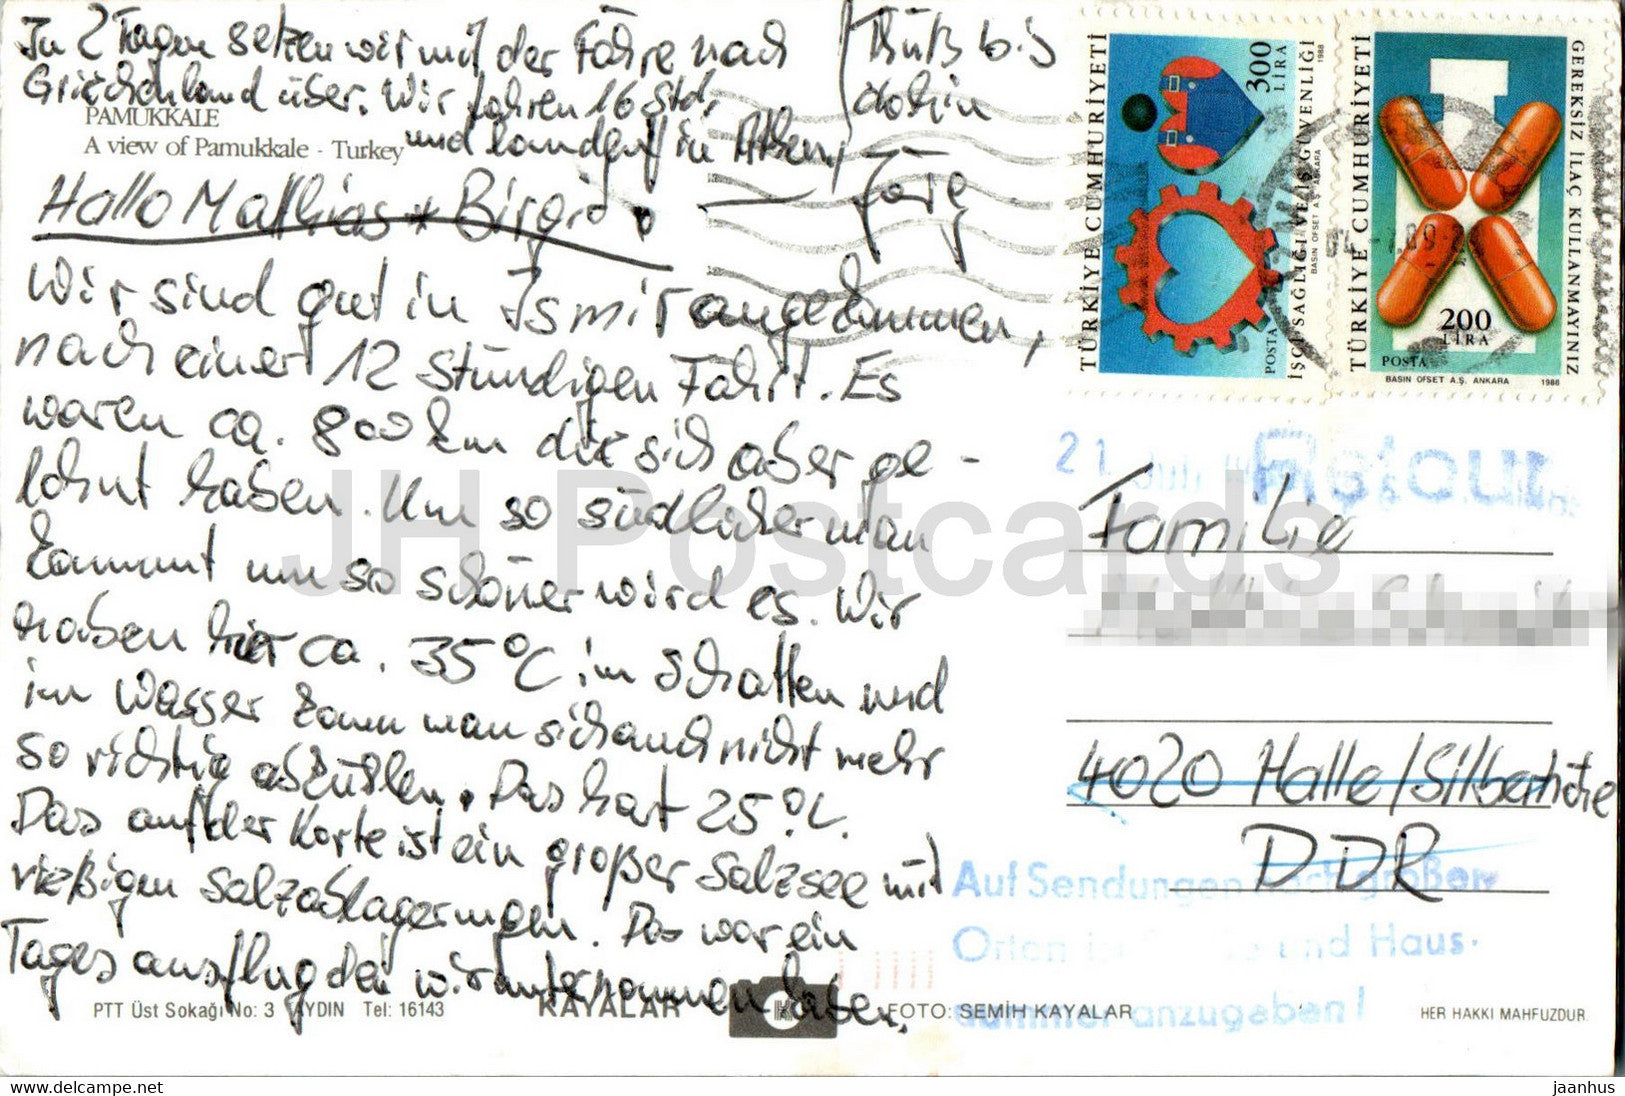 In 2 Tagen setzen wir mit der Fähre nach
Griechenland über. Wir fahren 16 Std.
und landen in Athen,
Tschüß bis
dahin
Jörg
PAMUKKALE
A view of Pamukkale - Turkey
Hallo Mathias + Birgid!
Wir sind gut in Ismir angekommen,
nach einer 12 stündigen Fahrt. Es
waren ca. 800 km die sich aber ge-
lohnt haben. Um so südlicher man
kommt um so schöner wird es. Wir
haben hier ca. 35°C im Schatten und
im Wasser kann man sich auch nicht mehr
so richtig abkühlen. Das hat 25°C.
Das auf der Karte ist ein großer Salzsee mit
rießigen Salzablagerungen. Das war ein
Tagesausflug den wir unternommen haben.
TÜRKİYE CUMHURİYETİ
300
LİRA
POSTA
İŞÇİ SAĞLIĞI VE İŞ GÜVENLİĞİ
BASIN OFSET A.Ş. ANKARA
1988
TÜRKİYE CUMHURİYETİ
GEREKSİZ İLAÇ KULLANMAYINIZ
200
LİRA
POSTA
BASIN OFSET A.Ş. ANKARA 1988
21
Retour
Familie
4020 Halle/Silberhöhe
DDR
Auf Sendungen nach großen
Orten ist und Haus-
nummer anzugeben!
PTT Üst Sokağı No: 3 AYDIN Tel: 16143
KAYALAR
K
FOTO: SEMİH KAYALAR
HER HAKKI MAHFUZDUR.
JH Postcards
https://www.delcampe.net
jaanhus